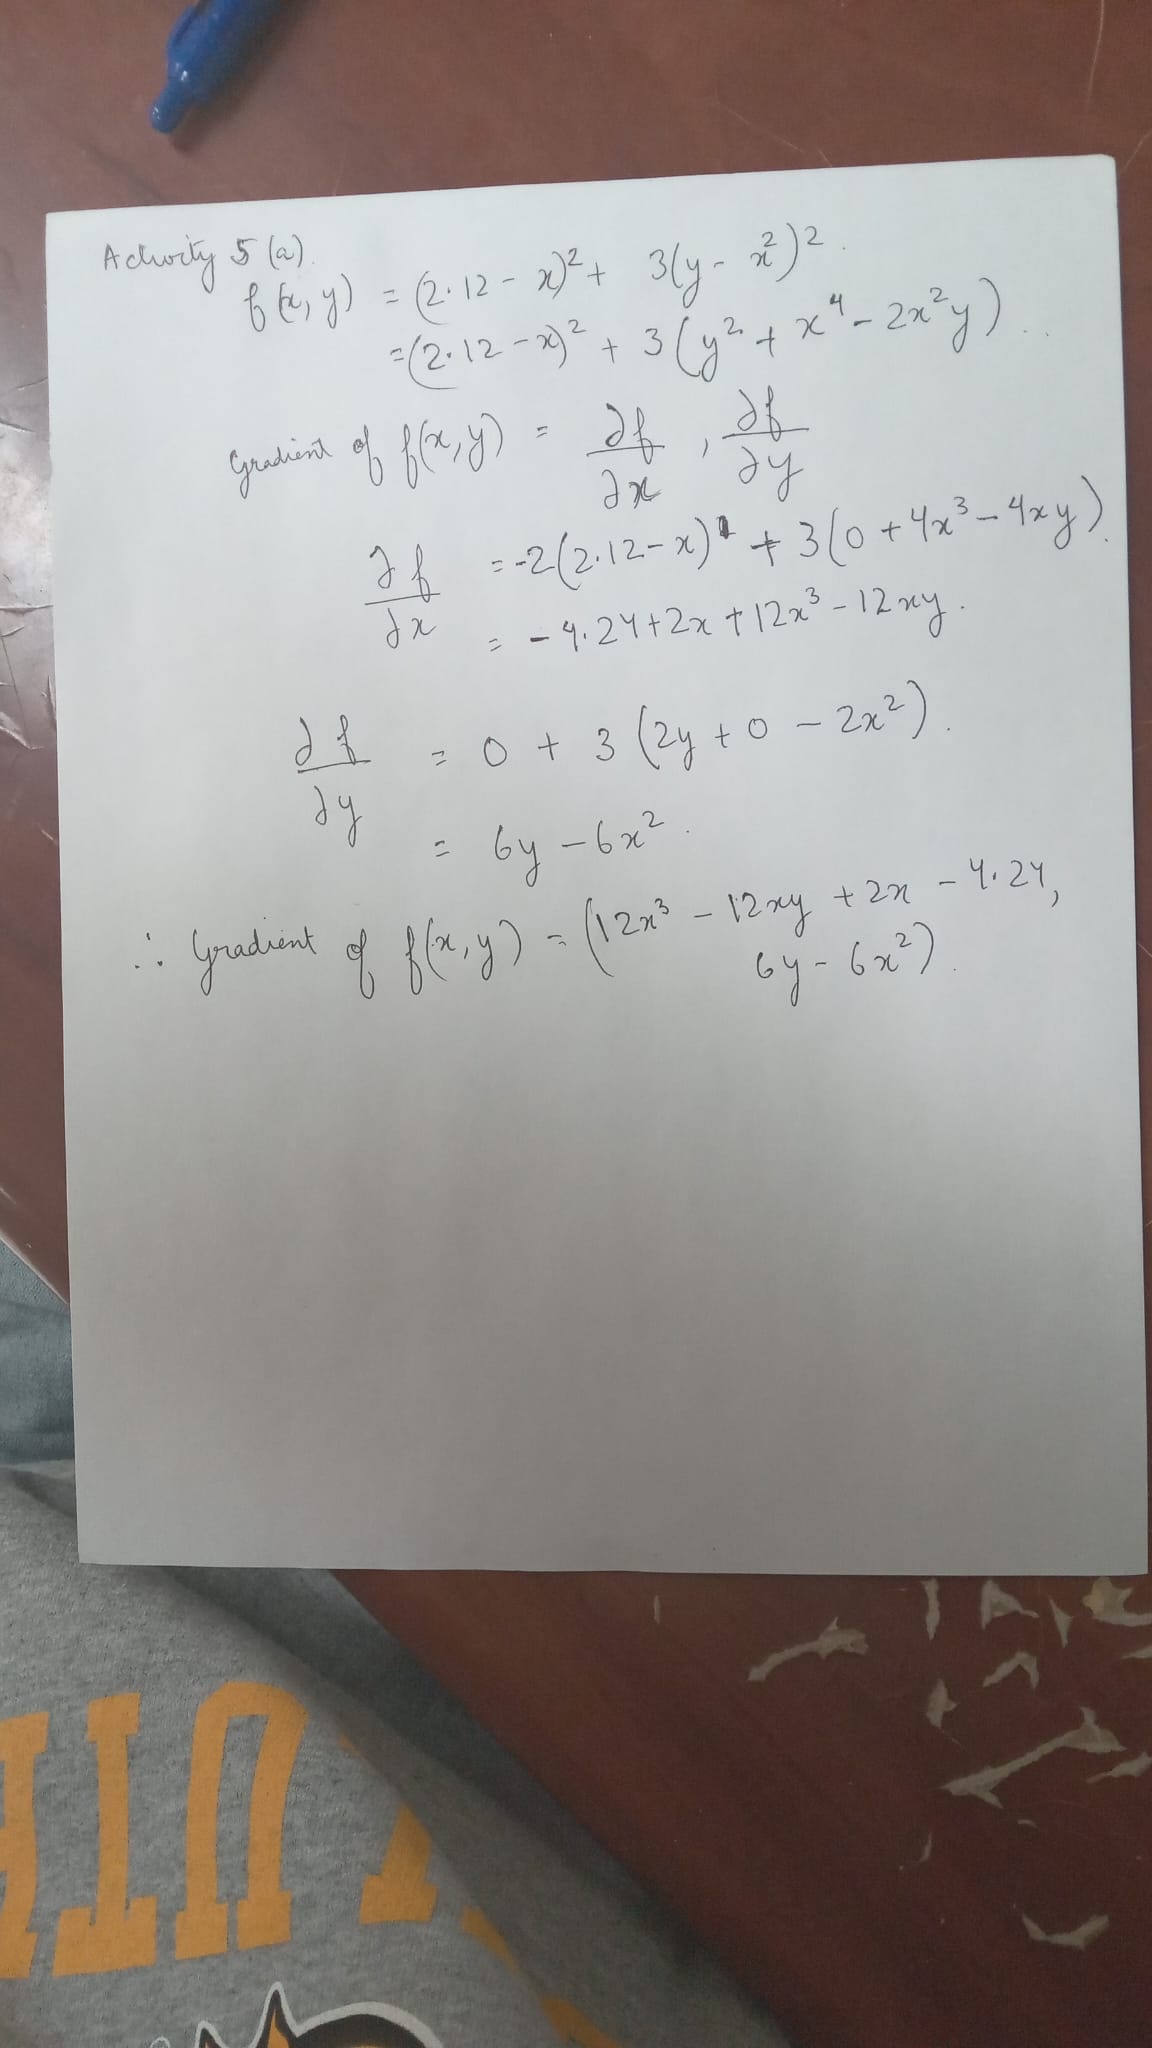 Activity 5 (a).
f(x, y) = (2.12 - x)² + 3(y - x²)².
= (2.12 - x)² + 3(y² + x⁴ - 2x²y)..
Gradient of f(x, y) = ∂f/∂x , ∂f/∂y
∂f/∂x = -2(2.12 - x)¹ + 3(0 + 4x³ - 4xy).
= - 4.24 + 2x + 12x³ - 12xy.
∂f/∂y = 0 + 3(2y + 0 - 2x²).
= 6y - 6x².
∴ Gradient of f(x, y) = (12x³ - 12xy + 2x - 4.24,
6y - 6x²).